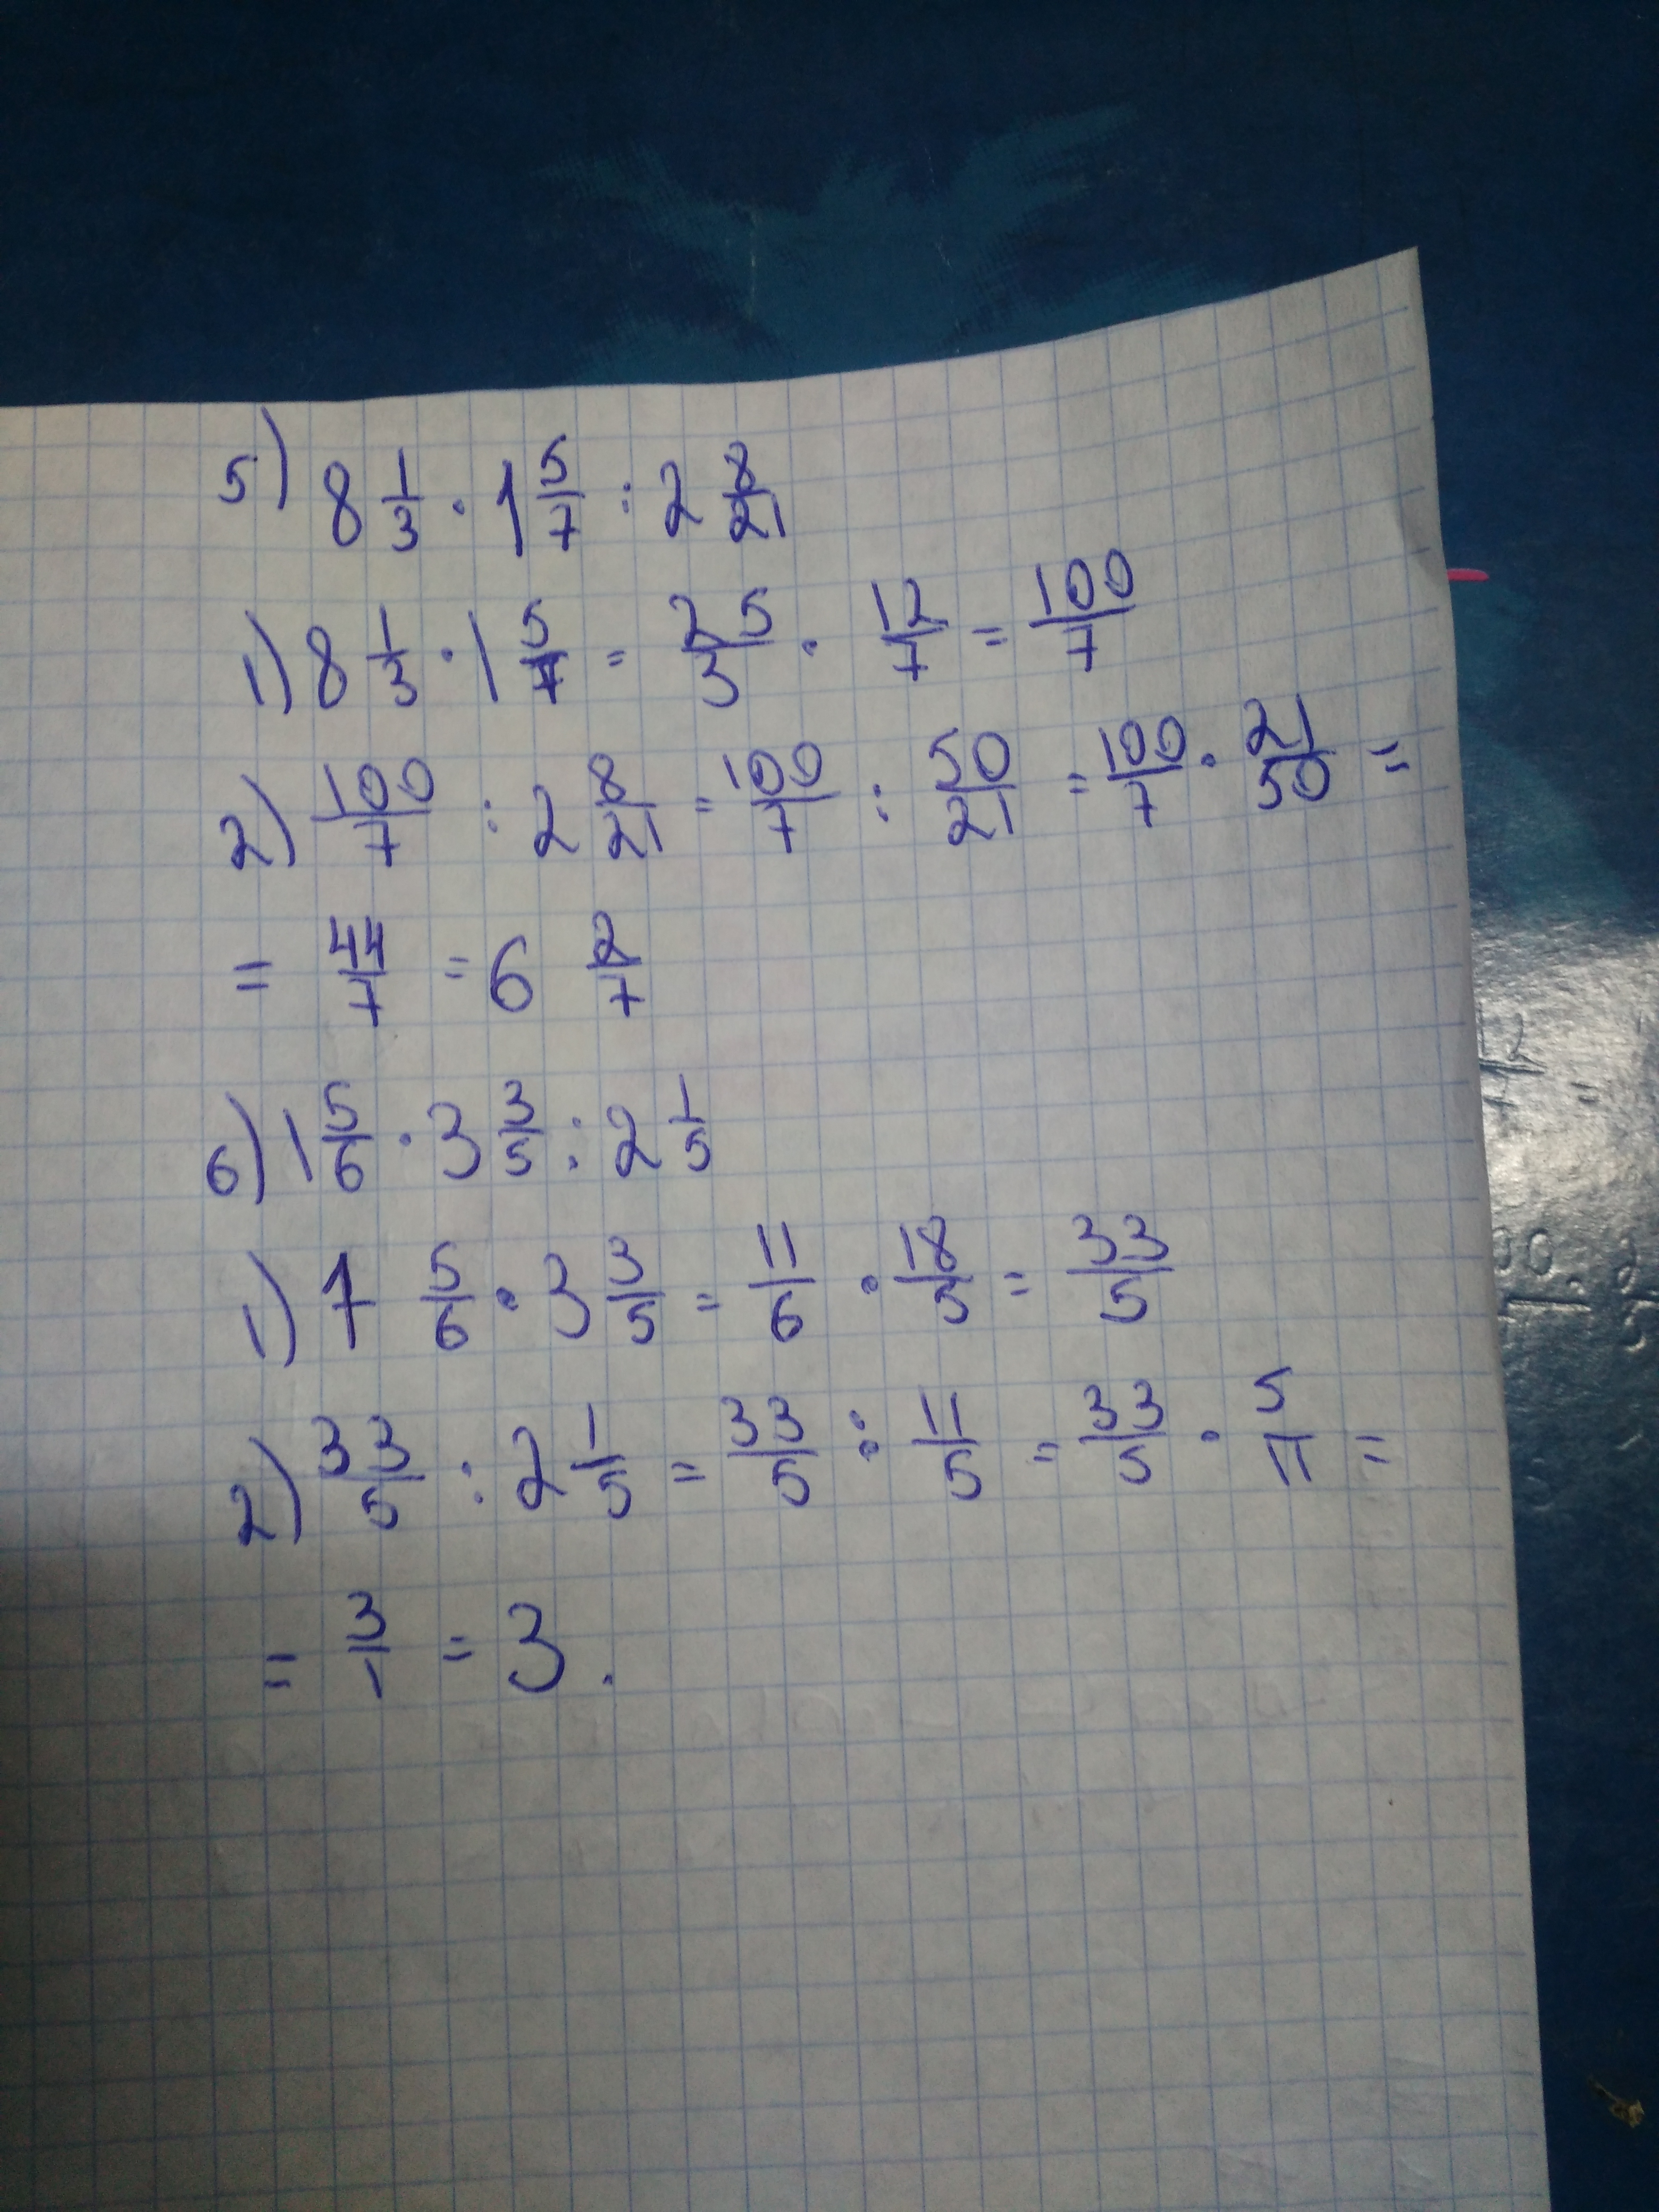 5) 8 1/3 · 1 5/7 : 2 8/21
1) 8 1/3 · 1 5/7 = 25/3 · 12/7 = 100/7
2) 100/7 : 2 8/21 = 100/7 : 50/21 = 100/7 · 21/50 =
= 44/7 = 6 2/7
6) 1 5/6 · 3 3/5 : 2 1/5
1) 1 5/6 · 3 3/5 = 11/6 · 18/5 = 33/5
2) 33/5 : 2 1/5 = 33/5 : 11/5 = 33/5 · 5/11 =
= 3/1 = 3.